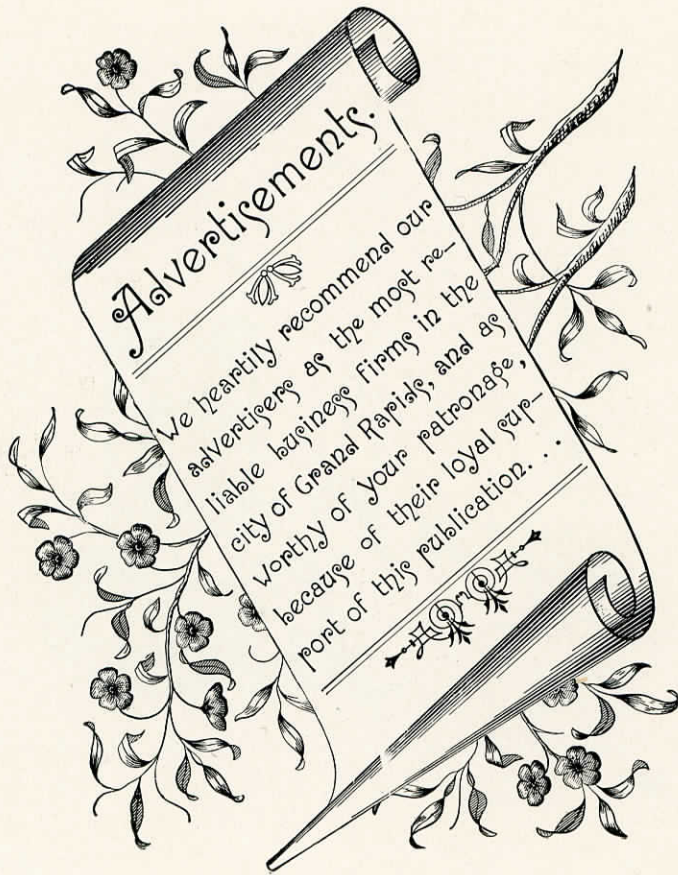 Advertisements.
We heartily recommend our
advertisers as the most re-
liable business firms in the
city of Grand Rapids, and as
worthy of your patronage,
because of their loyal sup-
port of this publication. . .